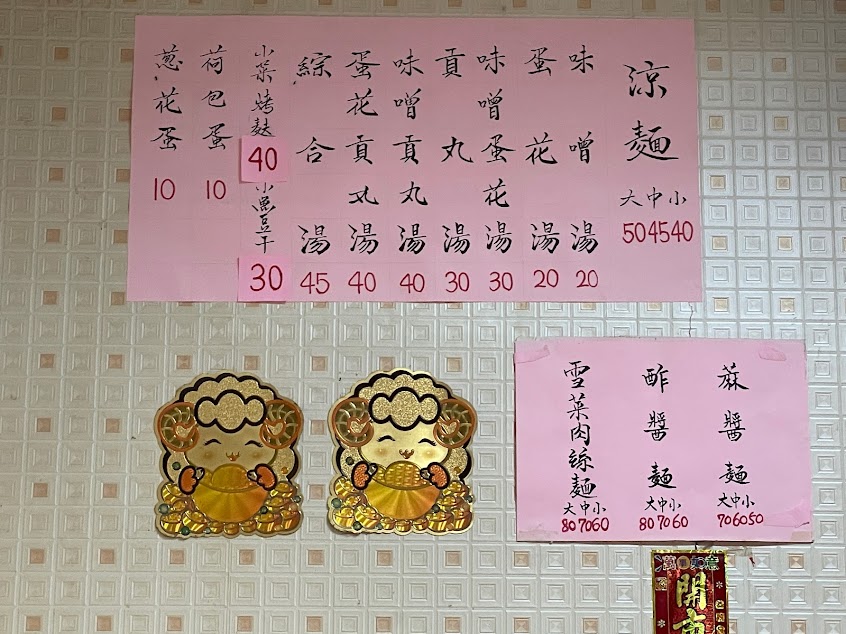 涼麵
大中小
504540
味噌湯
20
蛋花湯
20
味噌蛋花湯
30
貢丸湯
30
味噌貢丸湯
40
蛋花貢丸湯
40
綜合湯
45
小菜烤麩
40
小魚豆干
30
荷包蛋
10
蔥花蛋
10
蔴醬麵
大中小
706050
酢醬麵
大中小
807060
雪菜肉絲麵
大中小
807060
開市